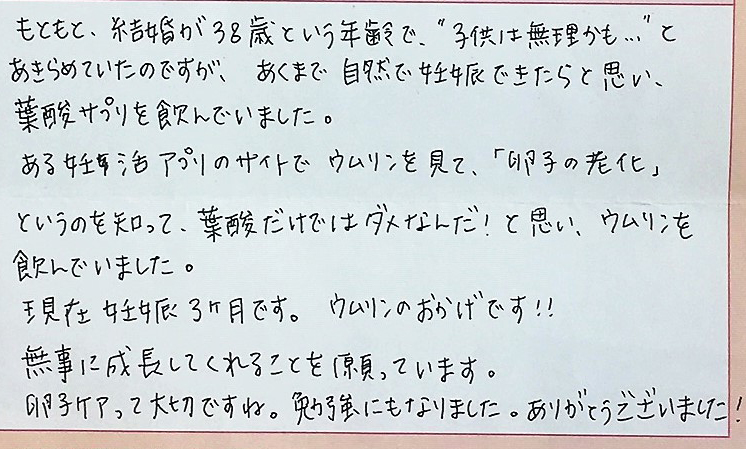 もともと、結婚が38歳という年齢で、"子供は無理かも…"と
あきらめていたのですが、あくまで自然で妊娠できたらと思い、
葉酸サプリを飲んでいました。
ある妊活アプリのサイトでウムリンを見て、「卵子の老化」
というのを知って、葉酸だけではダメなんだ!と思い、ウムリンを
飲んでいました。
現在妊娠3ケ月です。ウムリンのおかげです!!
無事に成長してくれることを願っています。
卵子ケアって大切ですね。勉強にもなりました。ありがとうございました!